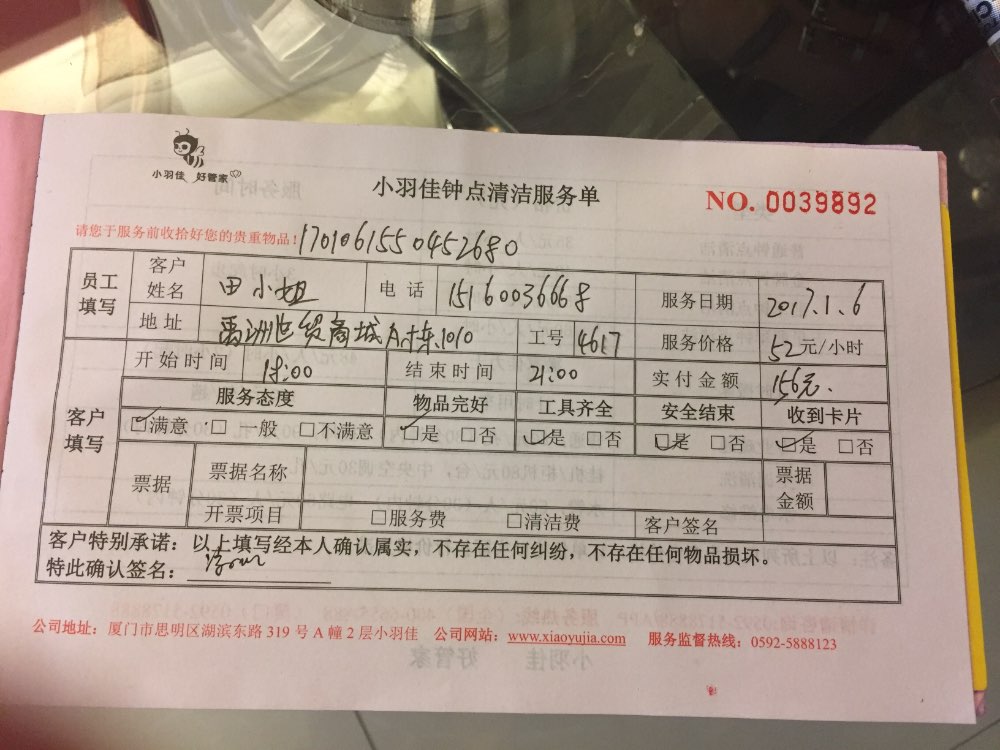 小羽佳 好管家
小羽佳钟点清洁服务单
NO. 0039892
请您于服务前收拾好您的贵重物品！1701061550452680
员工填写 客户姓名 田小姐 电话 15160036668 服务日期 2017.1.6
地址 禹洲世贸商城A栋1010 工号 4617 服务价格 52元/小时
开始时间 18:00 结束时间 21:00 实付金额 156元.
客户填写 服务态度 物品完好 工具齐全 安全结束 收到卡片
☑满意 □一般 □不满意 ☑是 □否 ☑是 □否 ☑是 □否 ☑是 □否
票据 票据名称 票据金额
开票项目 □服务费 □清洁费 客户签名
客户特别承诺：以上填写经本人确认属实，不存在任何纠纷，不存在任何物品损坏。
特此确认签名：
公司地址：厦门市思明区湖滨东路319号A幢2层小羽佳 公司网站：www.xiaoyujia.com 服务监督热线：0592-5888123